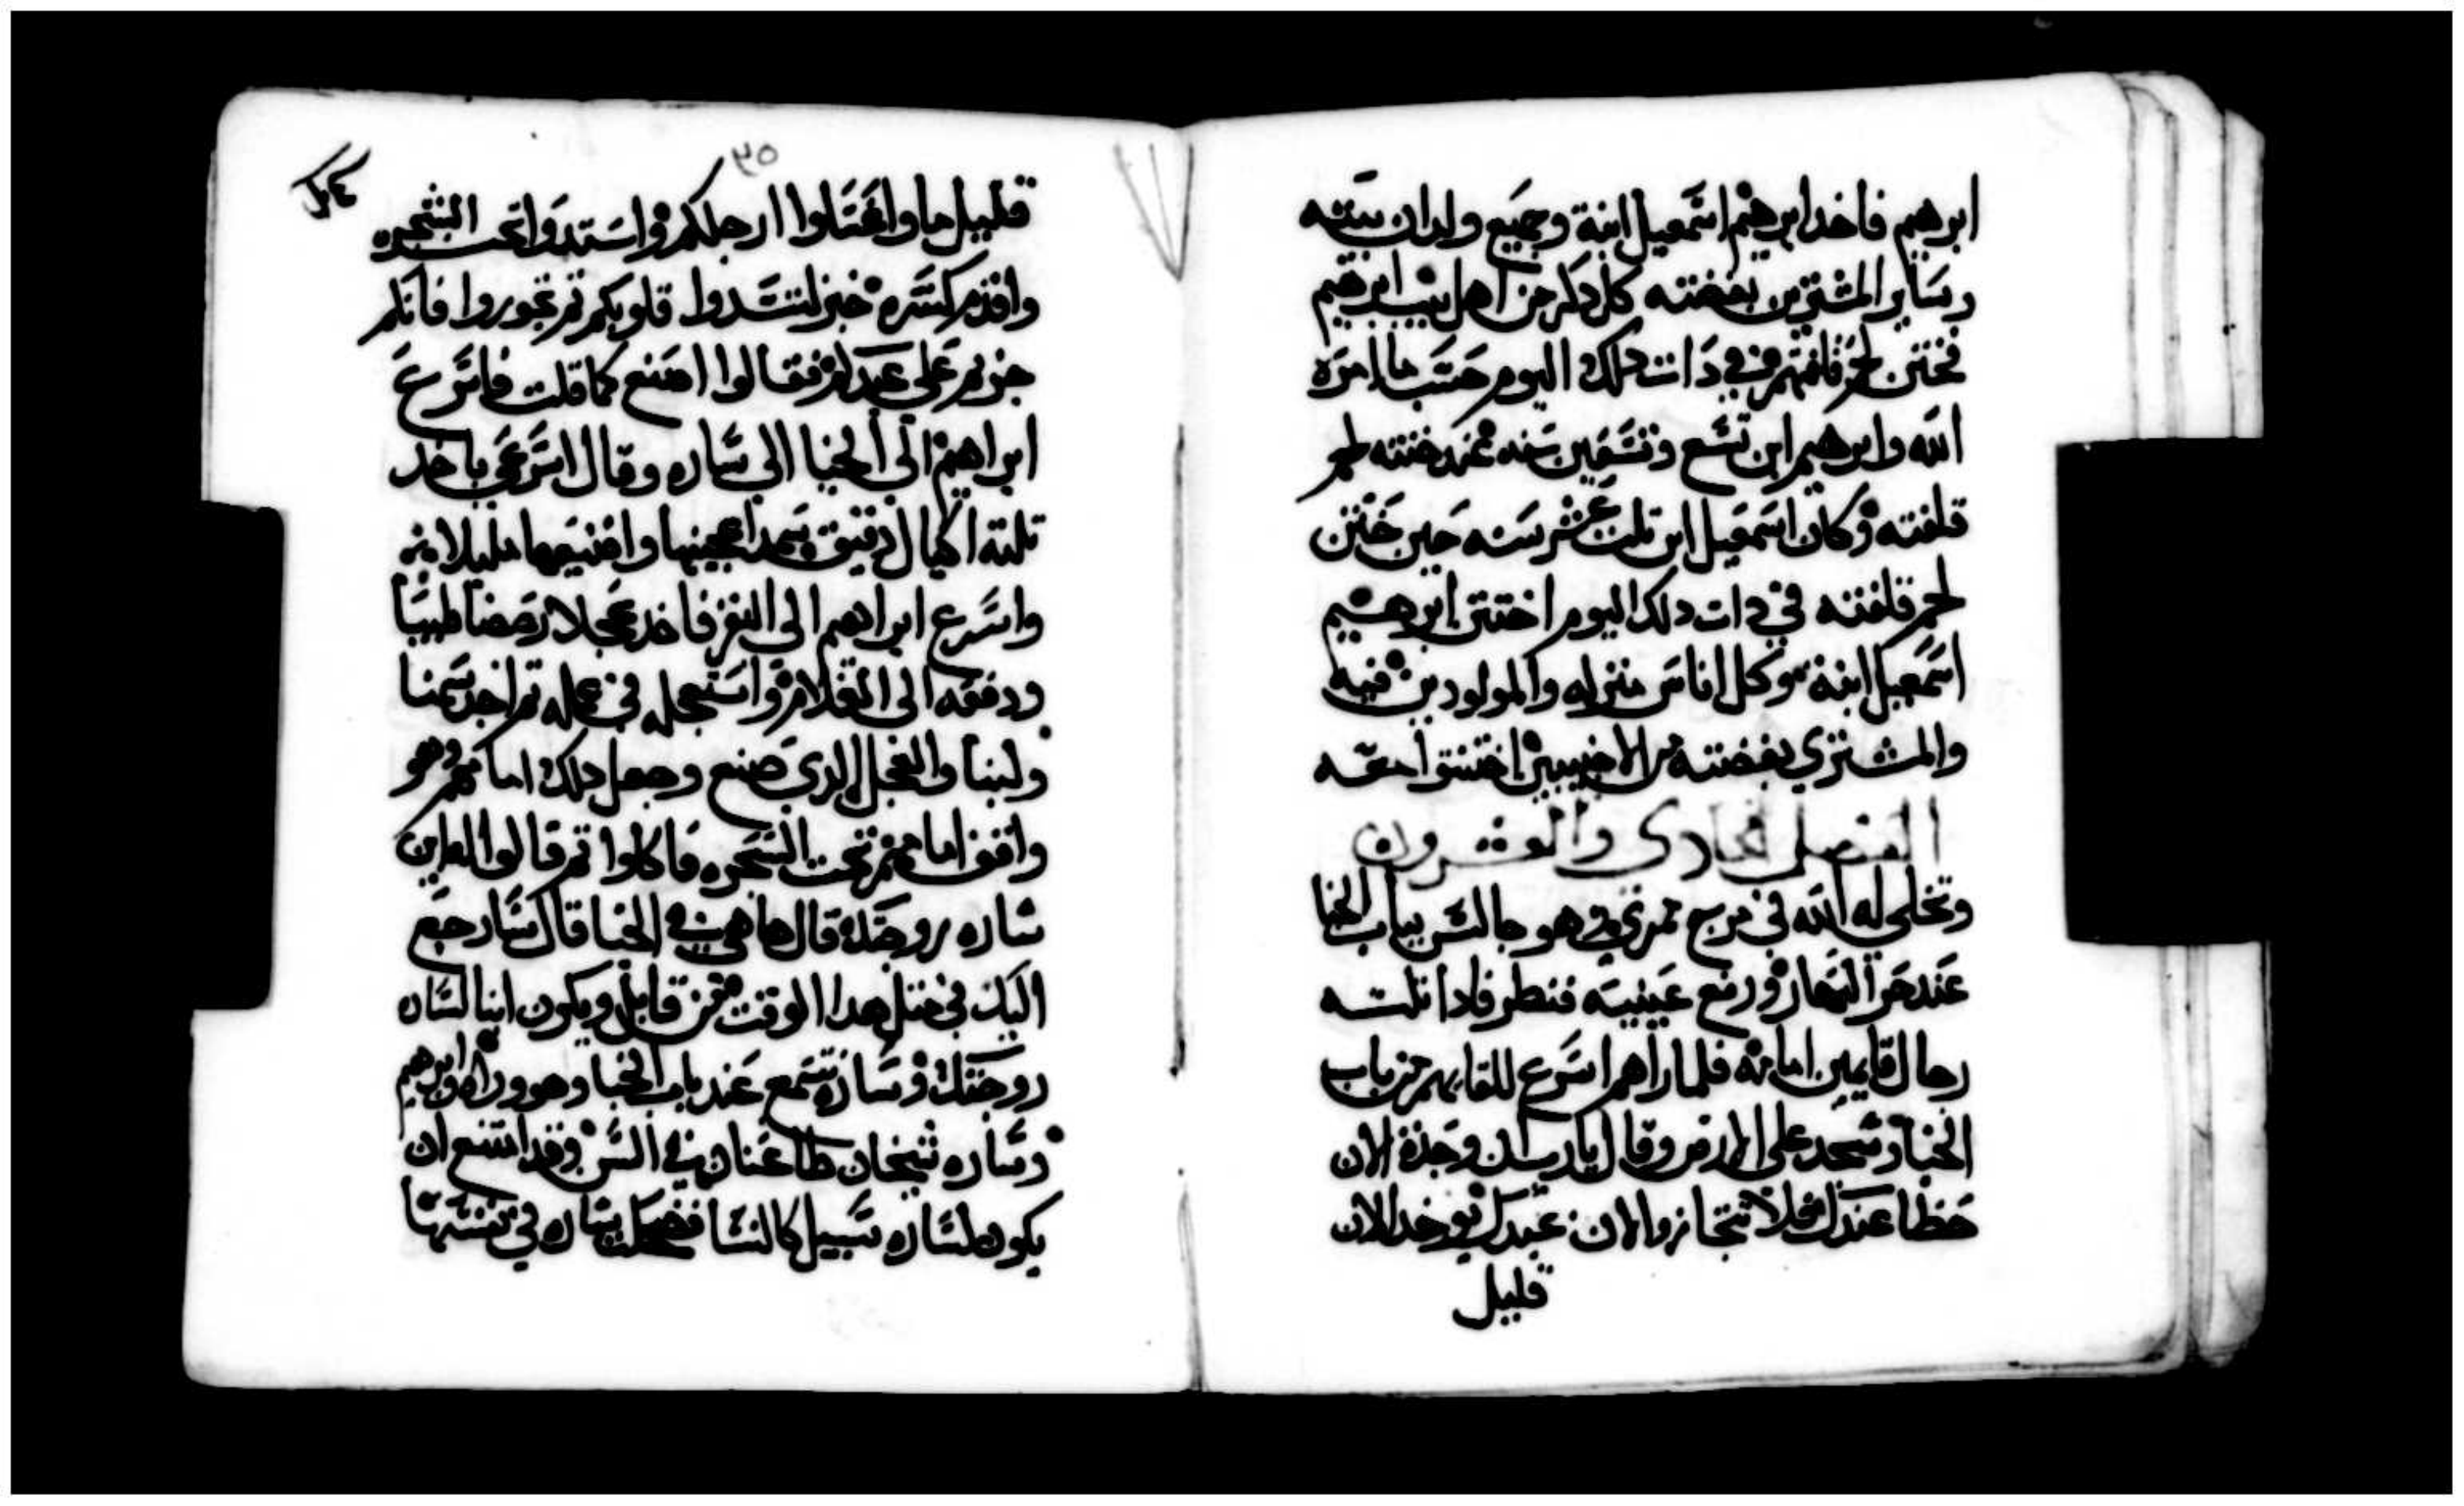 ابرهيم فاخد ابرهيم اسمعيل ابنه وجميع ولدان بيته
وساير المشترين بفضته كل دكر من اهل بيت ابرهيم
فختن لحم قلفتهم في دات دلك اليوم حسب ما امره
الله وابرهيم ابن تسع وتسعين سنه عند ختنه لحم
قلفته وكان اسمعيل ابن تلت عشر سنه حين ختن
لحم قلفته في دات دلك اليوم اختتن ابرهيم
اسمعيل ابنه وكل اناس منزله والمولودين فيه
والمشتري بفضته من الاجنبيين اختتنوا معه
الفصل الحادى والعشرون
وتجلي له الله في مرج ممري وهو جالس بباب الخبا
عند حر النهار ورفع عينيه فنطر فادا تلته
رجال قايمين امامه فلما راهم اسرع للقايهم من باب
الخبا وسجد على الارض وقال يارب ان وجدة الان
حظا عندك فلا تتجاز والان عبدك يوخد الان
قليل
٣٥
قليل ما واغتسلوا ارجلكم واستدوا تحت الشجره
واقدم كسره خبز لتشدوا قلوبكم تم تجوروا فانكم
جزتم على عبدكم فقالوا اصنع كما قلت فاسرع
ابراهيم الى الخبا الي ساره وقال اسرعي باخد
تلته اكيال دقيق سمد اعجنيها واصنيعها مليلا منه
واسرع ابراهيم الى البقر فاخد عجلا رخصا طيبا
ودفعه الى الغلام واستعجله في عمله تم اخد سمنا
ولبنا والعجل الدي صنع وجعل دلك امامهم وهو
واقف امامهم تحت الشجره فاكلوا تم قالوا له اين
ساره زوجتك قال ها هي في الخبا قال سارجع
اليك في متل هدا الوقت من قابل ويكون ابنا لساره
زوجتك وساره تسمع عند باب الخبا وهو وراه وابرهيم
وساره شيخان طاعنان في السن وقد امتنع ان
يكون لساره سبيل كالنسا فضحكت ساره في نفسها